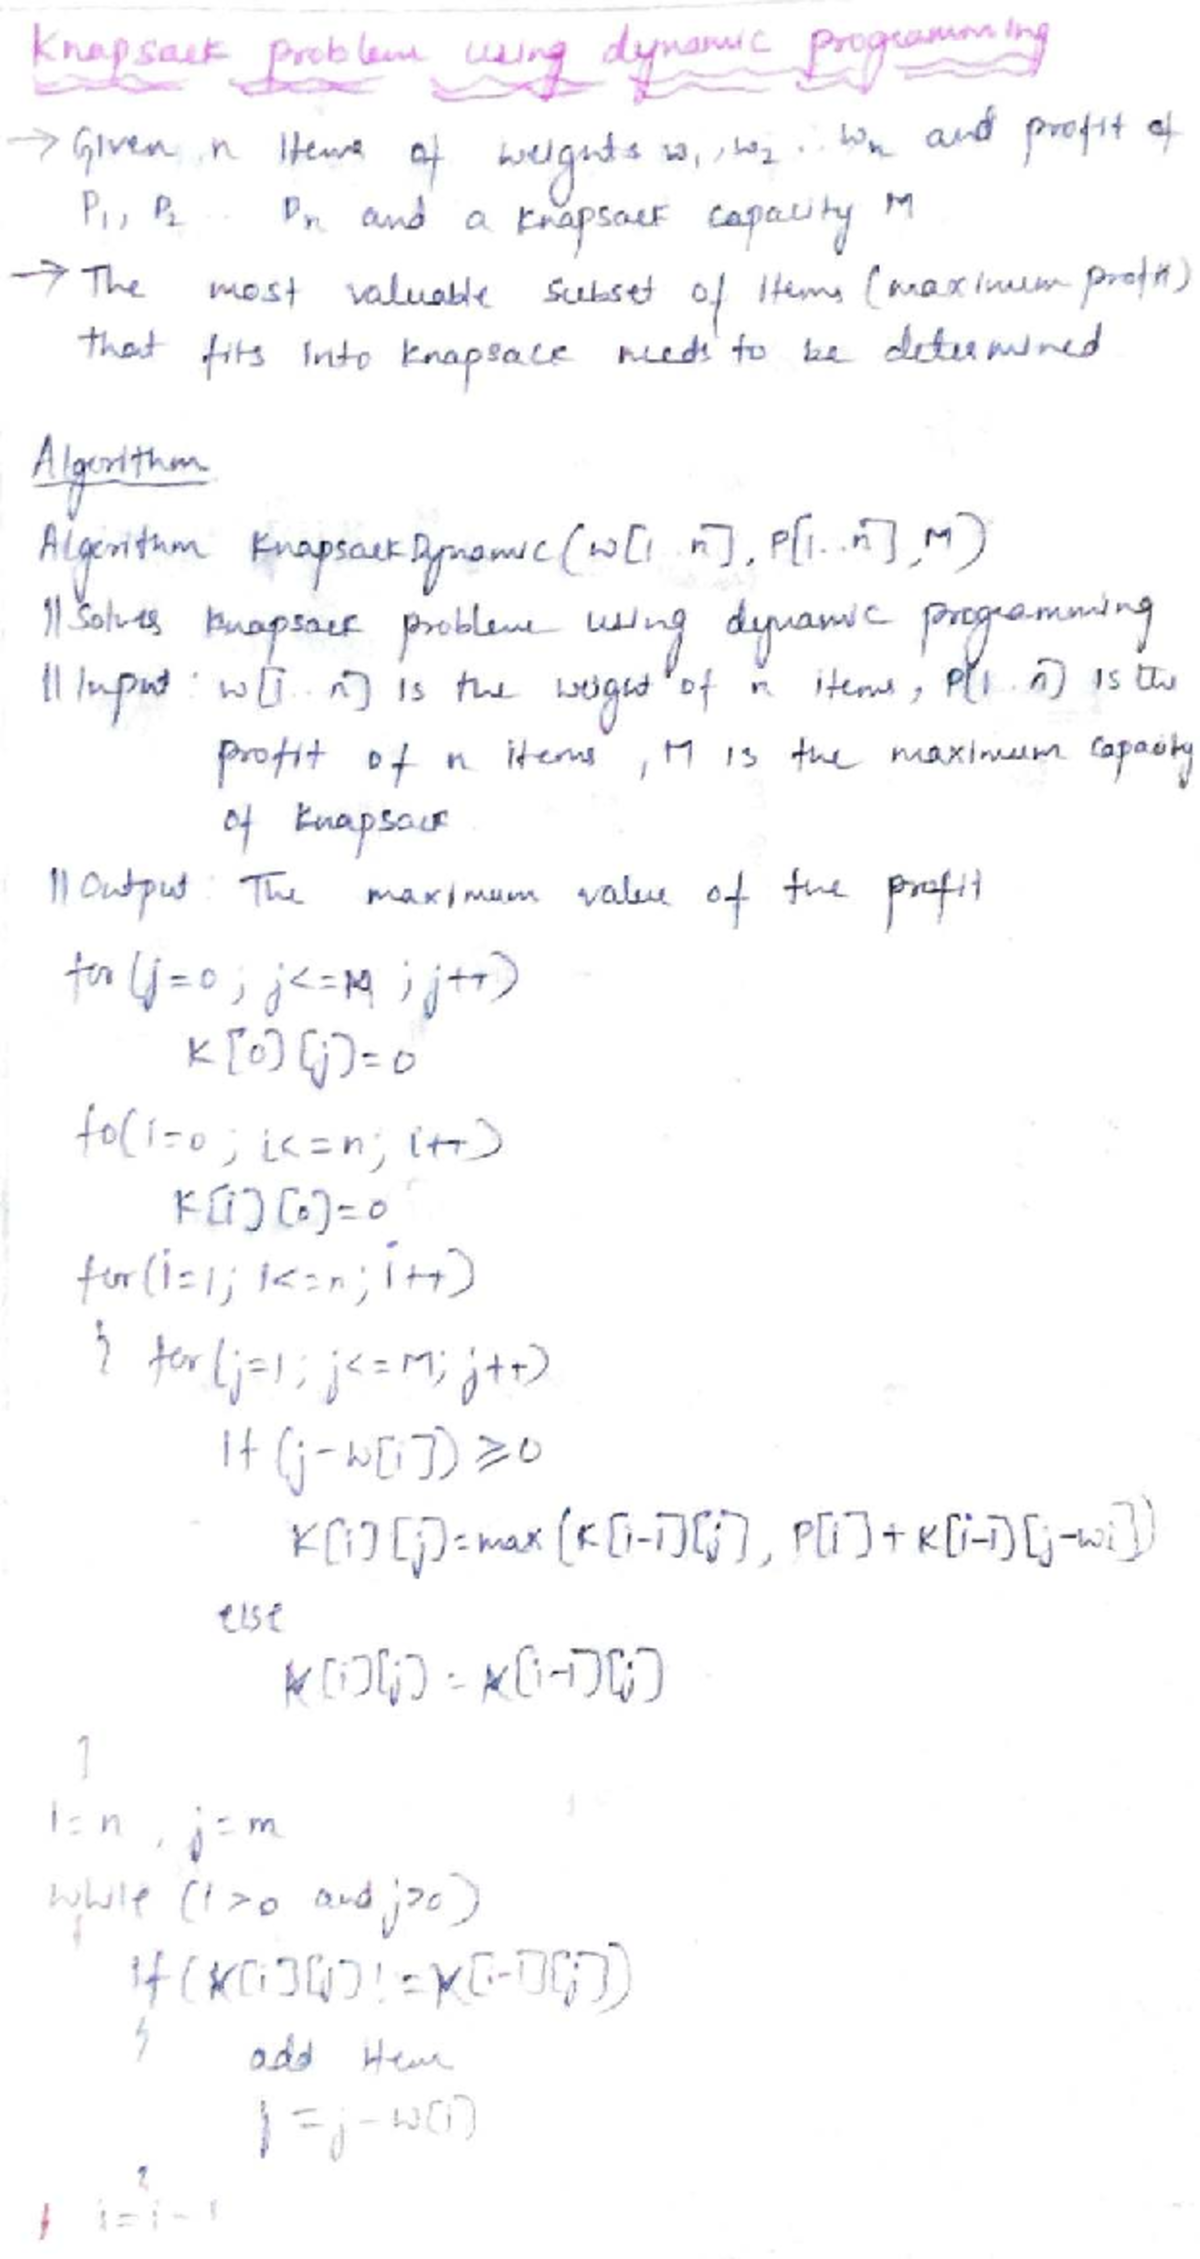 Knapsack problem using dynamic programming
→ Given n items of weights w₁, w₂ .. wₙ and profit of
P₁, P₂ .. Pₙ and a knapsack capacity M
→ The most valuable subset of items (maximum profit)
that fits into knapsack needs to be determined
Algorithm
Algorithm KnapsackDynamic(w[1..n], P[1..n], M)
// Solves knapsack problem using dynamic programming
// Input : w[1..n] is the weight of n items, P[1..n] is the
profit of n items, M is the maximum capacity
of knapsack
// Output : The maximum value of the profit
for(j=0; j<=M; j++)
K[0][j]=0
fo(i=0; i<=n; i++)
K[i][0]=0
for(i=1; i<=n; i++)
{ for(j=1; j<=M; j++)
if (j-w[i]) ≥ 0
K[i][j]=max(K[i-1][j], P[i]+K[i-1][j-wi])
else
K[i][j] = K[i-1][j]
}
i=n, j=m
while (i>0 and j>0)
{
if(K[i][j] != K[i-1][j])
{
add item
j = j-w[i]
}
} i=i-1